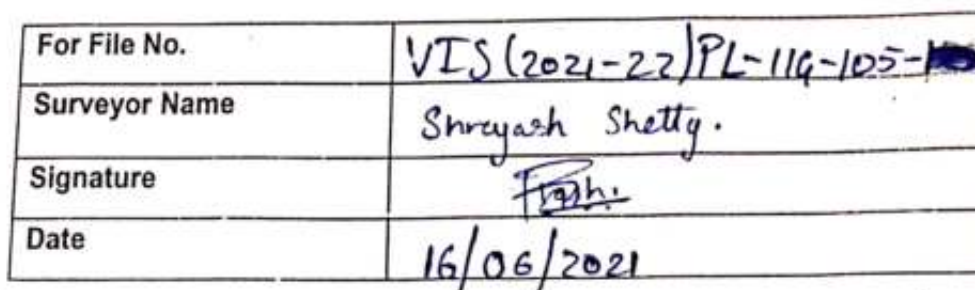 For File No. VIS(2021-22)PL-114-105-
Surveyor Name Shreyash Shetty.
Signature
Date 16/06/2021